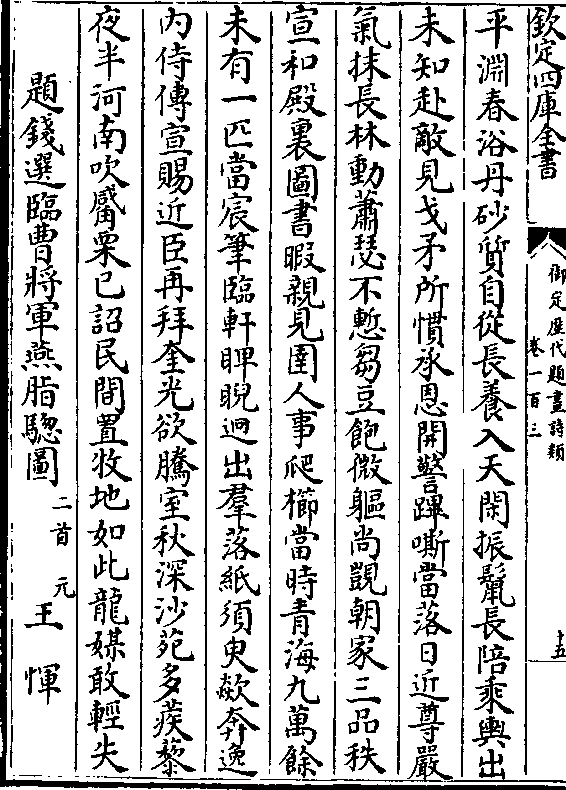 欽定四庫全書
御定歷代題畫詩類
卷一百三
十五
平淵春浴丹砂質自從長養入天閑振鬛長陪乘輿出
未知赴敵見戈矛所慣承恩開警蹕嘶當落日近尊嚴
氣抹長林動蕭瑟不慙芻豆飽微軀尚覬朝家三品秩
宣和殿裏圖書暇親見圉人事爬櫛當時青海九萬餘
未有一匹當宸筆臨軒睥睨迥出羣落紙須臾歘奔逸
内侍傳宣賜近臣再拜奎光欲騰室秋深沙苑多蒺藜
夜半河南吹觱栗已詔民間置牧地如此龍媒敢輕失
題錢選臨曹將軍燕脂驄圖 二首 元 王惲